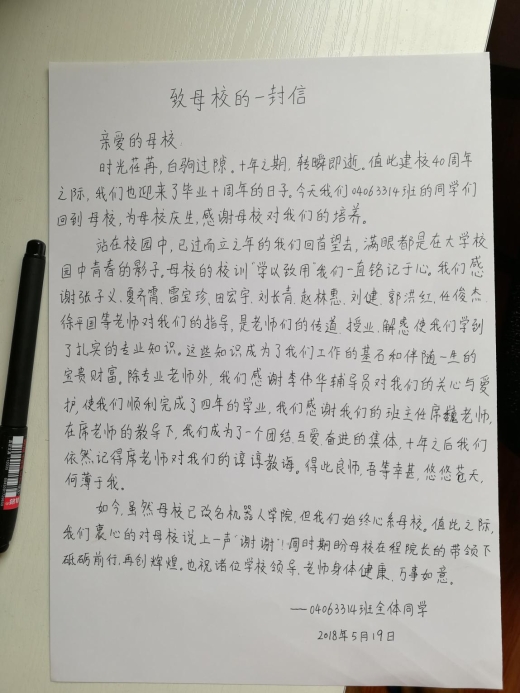 致母校的一封信
亲爱的母校:
时光荏苒,白驹过隙。十年之期,转瞬即逝。值此建校40周年
之际,我们也迎来了毕业十周年的日子。今天我们04063314班的同学们
回到母校,为母校庆生,感谢母校对我们的培养。
站在校园中,已过而立之年的我们回首望去,满眼都是在大学校
园中青春的影子。母校的校训“学以致用”我们一直铭记于心。我们感
谢张子义、夏齐霄、雷宝珍、田宏宇、刘长青、赵林惠、刘健、郭洪红、任俊杰
徐平国等老师对我们的指导,是老师们的传道、授业、解惑使我们学到
了扎实的专业知识。这些知识成为了我们工作的基石和伴随一生的
宝贵财富。除专业老师外,我们感谢李伟华辅导员对我们的关心与爱
护,使我们顺利完成了四年的学业,我们感谢我们的班主任席巍老师,
在席老师的教导下,我们成为了一个团结、互爱奋进的集体,十年之后我们
依然记得席老师对我们的谆谆教诲。得此良师,吾等幸甚,悠悠苍天,
何薄于我。
如今,虽然母校已改名机器人学院,但我们始终心系母校。值此之际,
我们衷心的对母校说上一声“谢谢”!同时期盼母校在程院长的带领下
砥砺前行,再创辉煌。也祝诸位学校领导、老师身体健康,万事如意。
——04063314班全体同学
2018年5月19日